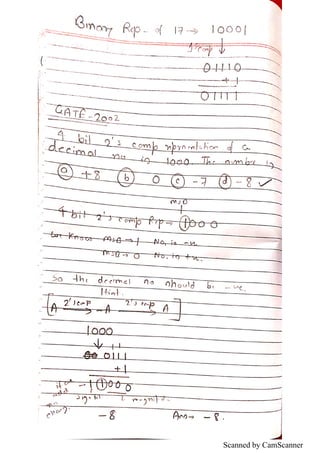 Binary Rep. of 17 → 10001
1's comp ↓
01110
+1
01111
GATE-2002
4 bit 2's comp representation of a
decimal no is 1000. The number is
(a) +8 (b) 0 (c) -7 (d) -8 ✓
MSB
4 bit 2's comp Rep → 1000
We know MSB → 1 No. is -ve
MSB → 0 No. is +ve.
So the decimal no should be -ve.
Hint:
[A 2's comp → -A 2's comp → A]
1000
↓
0111
+1
1000
-8 Ans → -8.
Scanned by CamScanner